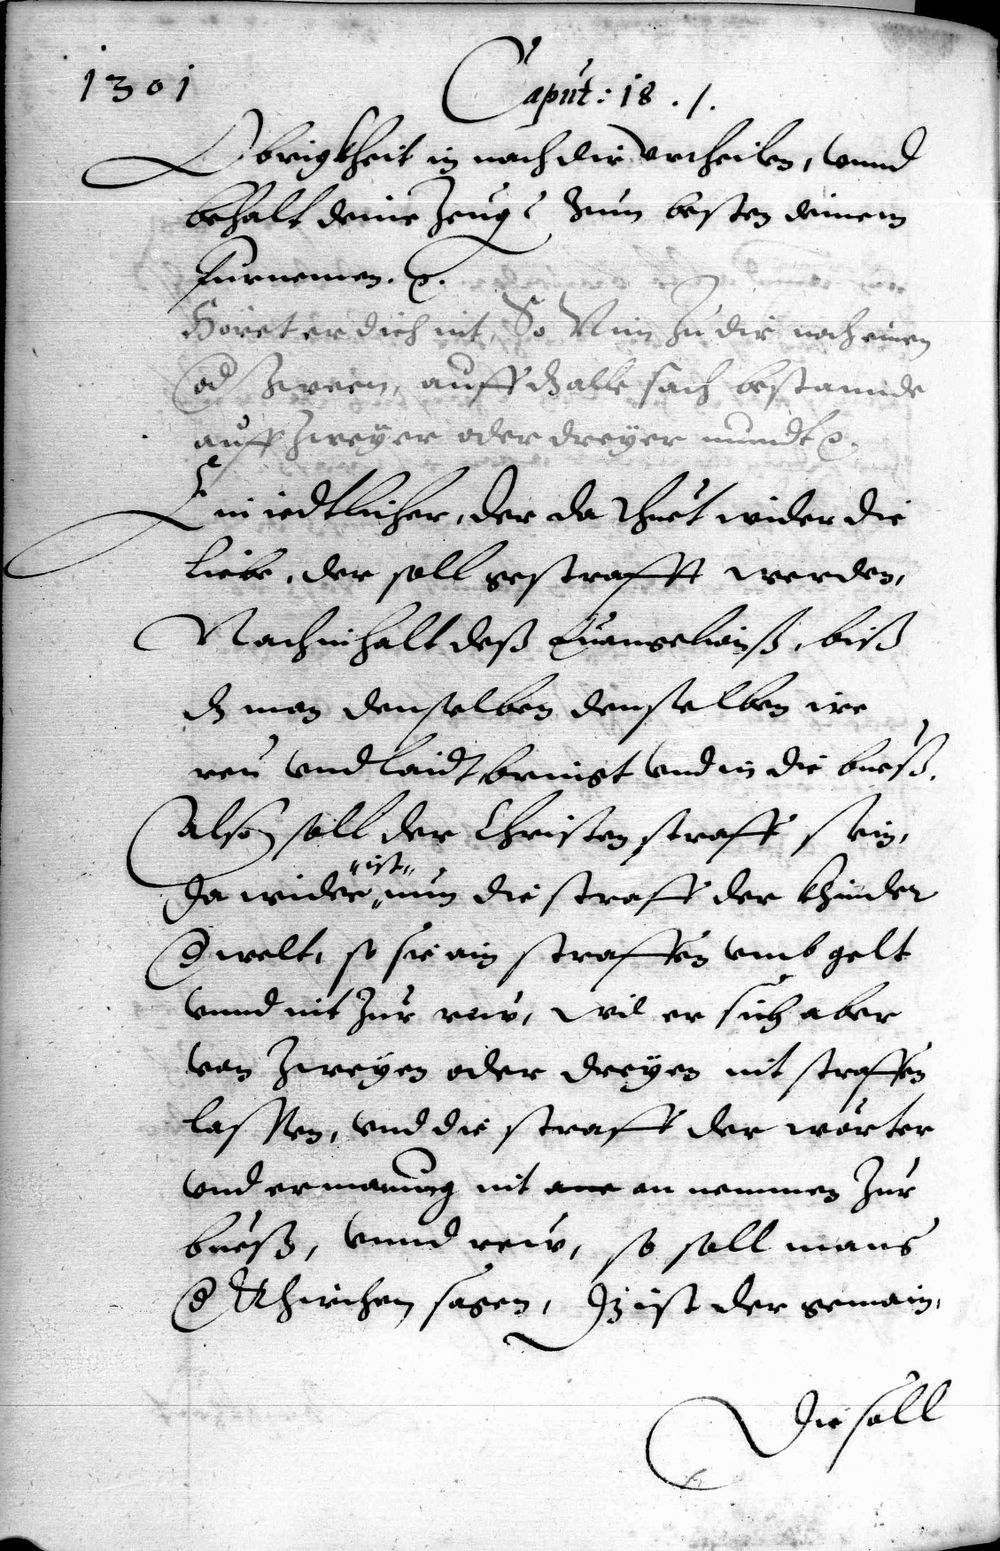 1301
Caput: 18 . /.
Obrigkheit in nach dir vrtheilen, vnnd
behalt deine Zeug zum besten deinem
furnemen. ꝛc.
Höret er dich nit, So Nim zu dir noch einen
od zween, auff dz alle sach bestannde
auff zweÿer oder dreÿer mundt ꝛc.
Ein iedtlicher, der da thuet wider die
Liebe, der soll gestrafft werden,
Nach inhalt deß Euangelions, biß
dz man denselben denselben ire
reu vnd laidt bringt vnd in die bueß.
Also soll der Christen straff sein,
Da wider nun die straff der khinder
"ist"
d welt, so sie ain straffen vmb gelt
vnnd nit zur reu, wil er sich aber
von zweÿen oder dreÿen nit straffen
lassen, vnd die straff der wörter
vnd ermanung nit an nemmen zur
bueß, vnnd reu, so soll mans
d Khirchen sagen, Dz ist der gemain,
Die soll